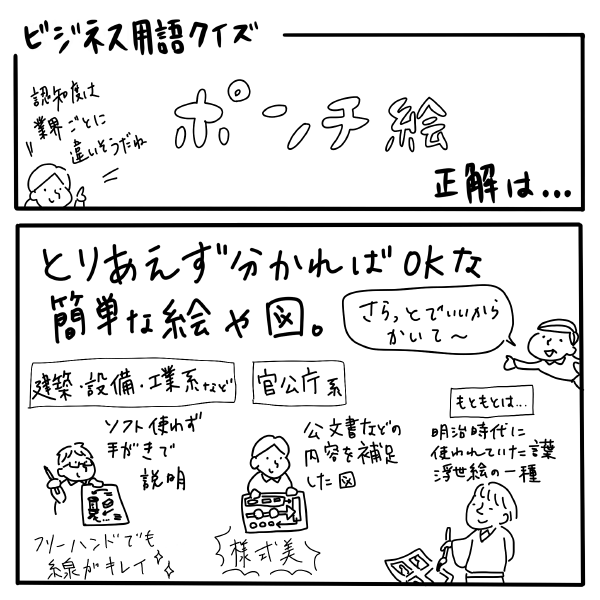 ビジネス用語クイズ
認知度は
業界ごとに
違いそうだね
ポンチ絵
正解は...
とりあえず分かればOKな
簡単な絵や図。
さらっとでいいから
かいて〜
建築・設備・工業系など
ソフト使わず
手がきで
説明
フリーハンドでも
線がキレイ
官公庁系
公文書などの
内容を補足
した図
様式美
もともとは...
明治時代に
使われていた言葉
浮世絵の一種